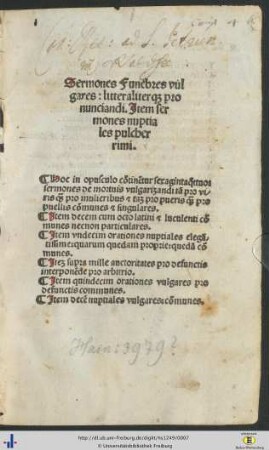 Sermones Funebres vul
gares: litteraliterqꝫ pro
nunciandi. Item ser
mones nuptia
les pulcher
rimi.
¶ Hoc in opusculo cōtinētur sexagintaqͥttuor
sermones de mortuis vulgarizandi: tā pro vi
ris qͥꝫ pro mulieribus ⁊ tāꝫ pro pueris qͥꝫ pro
puellis cōmunes ⁊ singulares.
¶ Item decem cum octo latini ⁊ luculenti cō
munes necnon particulares.
¶ Item vndecim orationes nuptiales elegā
tissime: quarum quedam proprie: quedā cō
munes.
¶ Itēꝫ supra mille auctoritates pro defunctis
interponēde pro arbitrio.
¶ Item quindecim orationes vulgares pro
defunctis communes.
¶ Item decē nuptiales vulgares: cōmunes.
Hain: 3979?
http://dl.ub.uni-freiburg.de/diglit/ik1249/0007
© Universitätsbibliothek Freiburg